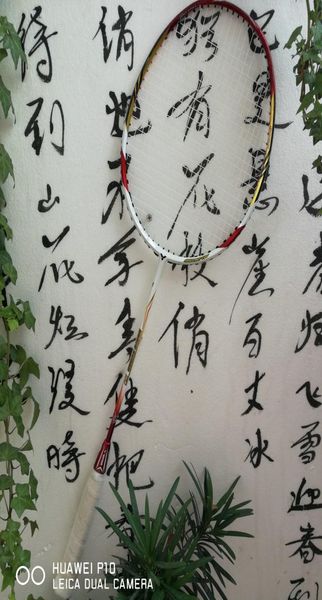 春归飞雪迎春到
已是悬崖百丈冰
犹有花枝俏
俏也不争春 把春
待到山花烂漫時
HUAWEI P10
LEICA DUAL CAMERA